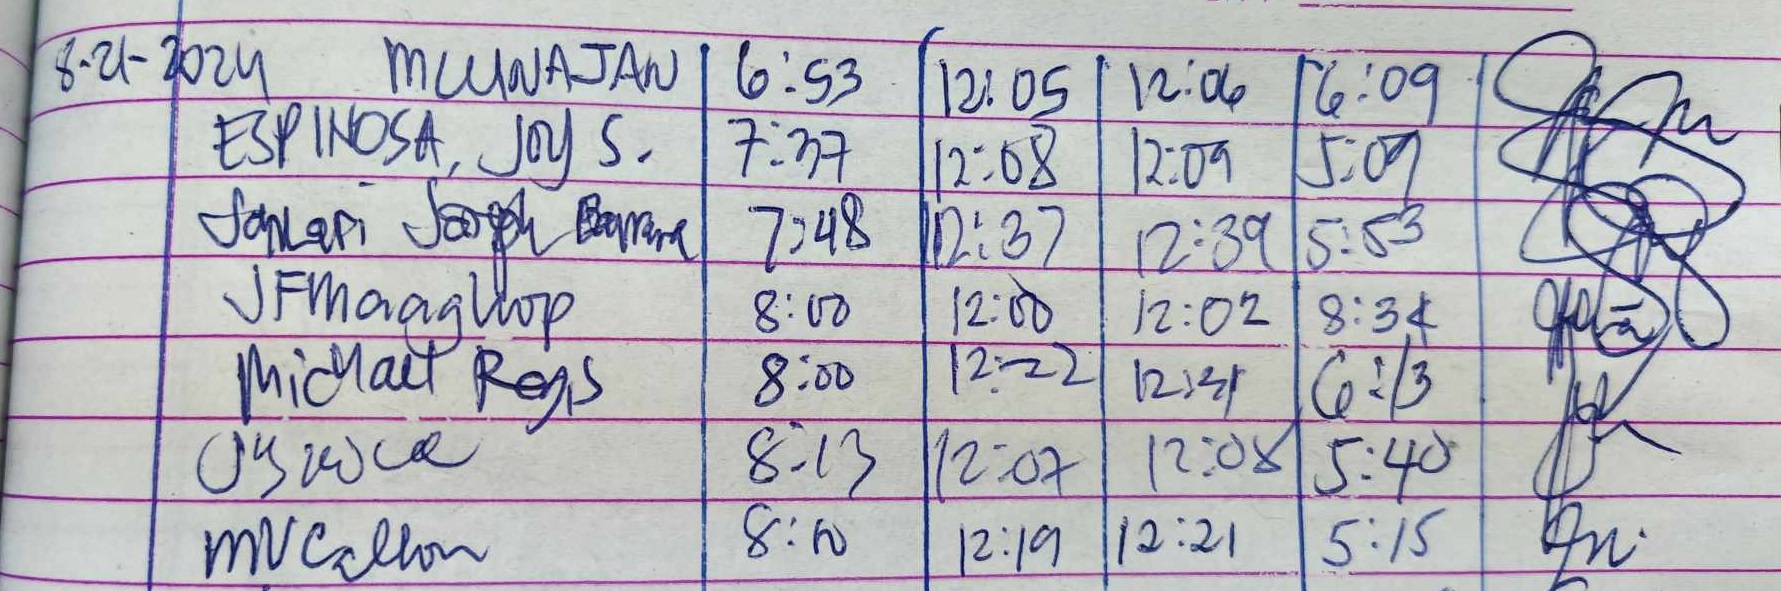 8-21-2024 MLUNAJAN 6:53 12:05 12:06 6:09
ESPINOSA, JOY S. 7:37 12:08 12:09 5:09
Joseph 7:48 12:37 12:39 5:53
8:00 12:00 12:02 8:34
Michael Regis 8:00 12:22 12:31 6:13
8:13 12:07 12:08 5:40
8:10 12:19 12:21 5:15